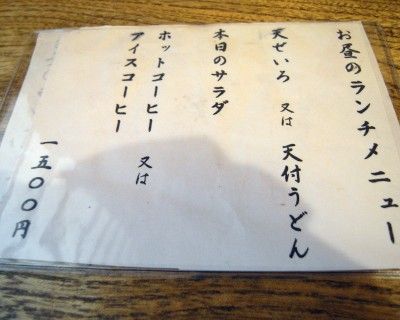 お昼のランチメニュー
天せいろ 又は 天付うどん
本日のサラダ
ホットコーヒー 又は
アイスコーヒー
一五〇〇円